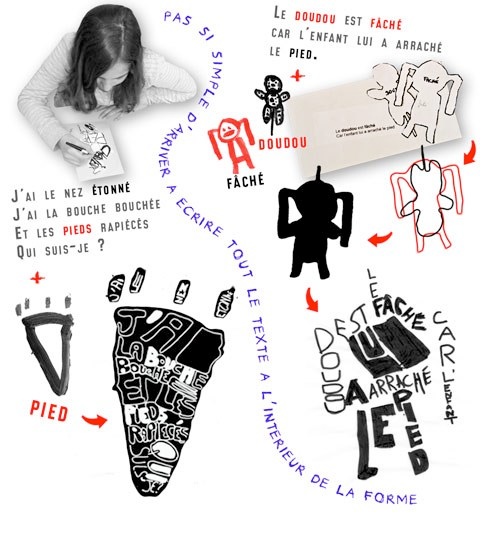 PAS SI SIMPLE D'ARRIVER A ECRIRE TOUT LE TEXTE A L'INTERIEUR DE LA FORME
LE DOUDOU EST FÂCHÉ
CAR L'ENFANT LUI A ARRACHÉ
LE PIED.
+
DOUDOU
FÂCHÉ
FÂCHÉ
Le doudou est fâché
Car l'enfant lui a arraché le pied
J'AI LE NEZ ÉTONNÉ
J'AI LA BOUCHE BOUCHÉE
ET LES PIEDS RAPIÉCÉS
QUI SUIS-JE ?
+
PIED
J'AI
LE
NEZ
J'AI
LA BOUCHE
BOUCHÉE
ET LES
PIEDS
RAPIÉCÉS
LE
DOUDOU
EST
FÂCHÉ
CAR
L'ENFANT
LUI
A
ARRACHÉ
LE
PIED